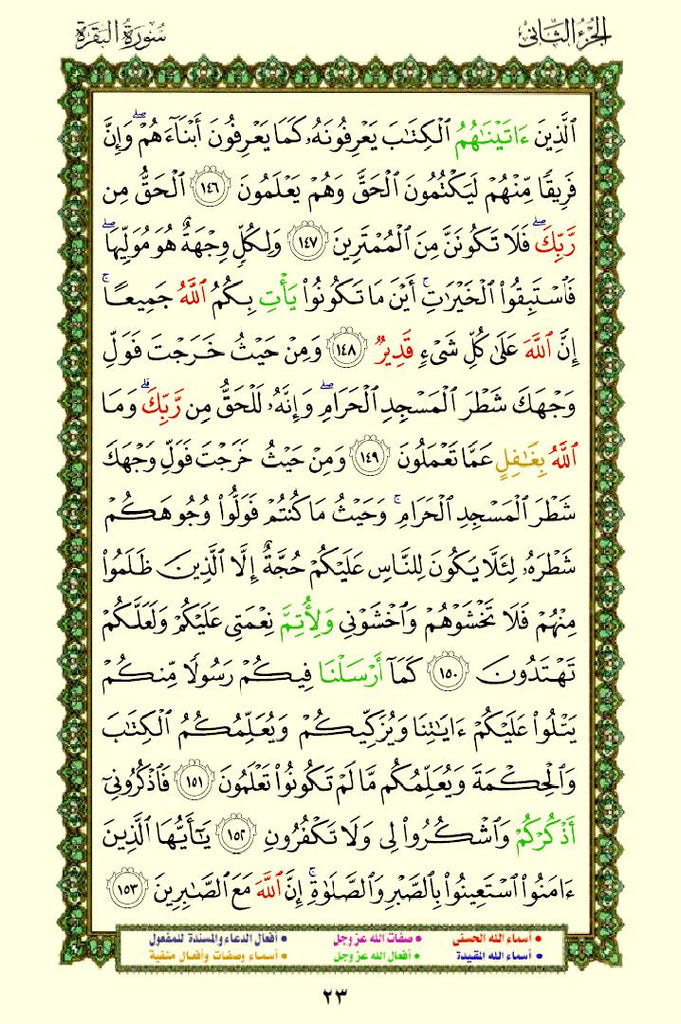 الجزء الثاني
سورة البقرة
ٱلَّذِينَ ءَاتَيْنَٰهُمُ ٱلْكِتَٰبَ يَعْرِفُونَهُۥ كَمَا يَعْرِفُونَ أَبْنَآءَهُمْۖ وَإِنَّ
فَرِيقًا مِّنْهُمْ لَيَكْتُمُونَ ٱلْحَقَّ وَهُمْ يَعْلَمُونَ ١٤٦ ٱلْحَقُّ مِن
رَّبِّكَۖ فَلَا تَكُونَنَّ مِنَ ٱلْمُمْتَرِينَ ١٤٧ وَلِكُلٍّ وِجْهَةٌ هُوَ مُوَلِّيهَاۖ
فَٱسْتَبِقُوا۟ ٱلْخَيْرَٰتِۚ أَيْنَ مَا تَكُونُوا۟ يَأْتِ بِكُمُ ٱللَّهُ جَمِيعًاۚ
إِنَّ ٱللَّهَ عَلَىٰ كُلِّ شَىْءٍ قَدِيرٌ ١٤٨ وَمِنْ حَيْثُ خَرَجْتَ فَوَلِّ
وَجْهَكَ شَطْرَ ٱلْمَسْجِدِ ٱلْحَرَامِۖ وَإِنَّهُۥ لَلْحَقُّ مِن رَّبِّكَۗ وَمَا
ٱللَّهُ بِغَٰفِلٍ عَمَّا تَعْمَلُونَ ١٤٩ وَمِنْ حَيْثُ خَرَجْتَ فَوَلِّ وَجْهَكَ
شَطْرَ ٱلْمَسْجِدِ ٱلْحَرَامِۚ وَحَيْثُ مَا كُنتُمْ فَوَلُّوا۟ وُجُوهَكُمْ
شَطْرَهُۥ لِئَلَّا يَكُونَ لِلنَّاسِ عَلَيْكُمْ حُجَّةٌ إِلَّا ٱلَّذِينَ ظَلَمُوا۟
مِنْهُمْ فَلَا تَخْشَوْهُمْ وَٱخْشَوْنِى وَلِأُتِمَّ نِعْمَتِى عَلَيْكُمْ وَلَعَلَّكُمْ
تَهْتَدُونَ ١٥٠ كَمَآ أَرْسَلْنَا فِيكُمْ رَسُولًا مِّنكُمْ
يَتْلُوا۟ عَلَيْكُمْ ءَايَٰتِنَا وَيُزَكِّيكُمْ وَيُعَلِّمُكُمُ ٱلْكِتَٰبَ
وَٱلْحِكْمَةَ وَيُعَلِّمُكُم مَّا لَمْ تَكُونُوا۟ تَعْلَمُونَ ١٥١ فَٱذْكُرُونِىٓ
أَذْكُرْكُمْ وَٱشْكُرُوا۟ لِى وَلَا تَكْفُرُونِ ١٥٢ يَٰٓأَيُّهَا ٱلَّذِينَ
ءَامَنُوا۟ ٱسْتَعِينُوا۟ بِٱلصَّبْرِ وَٱلصَّلَوٰةِۚ إِنَّ ٱللَّهَ مَعَ ٱلصَّٰبِرِينَ ١٥٣
• أسماء الله الحسنى • صفات الله عز وجل • أفعال الدعاء والمسندة للمفعول
• أسماء الله المقيدة • أفعال الله عز وجل • أسماء وصفات وأفعال منفية
٢٣